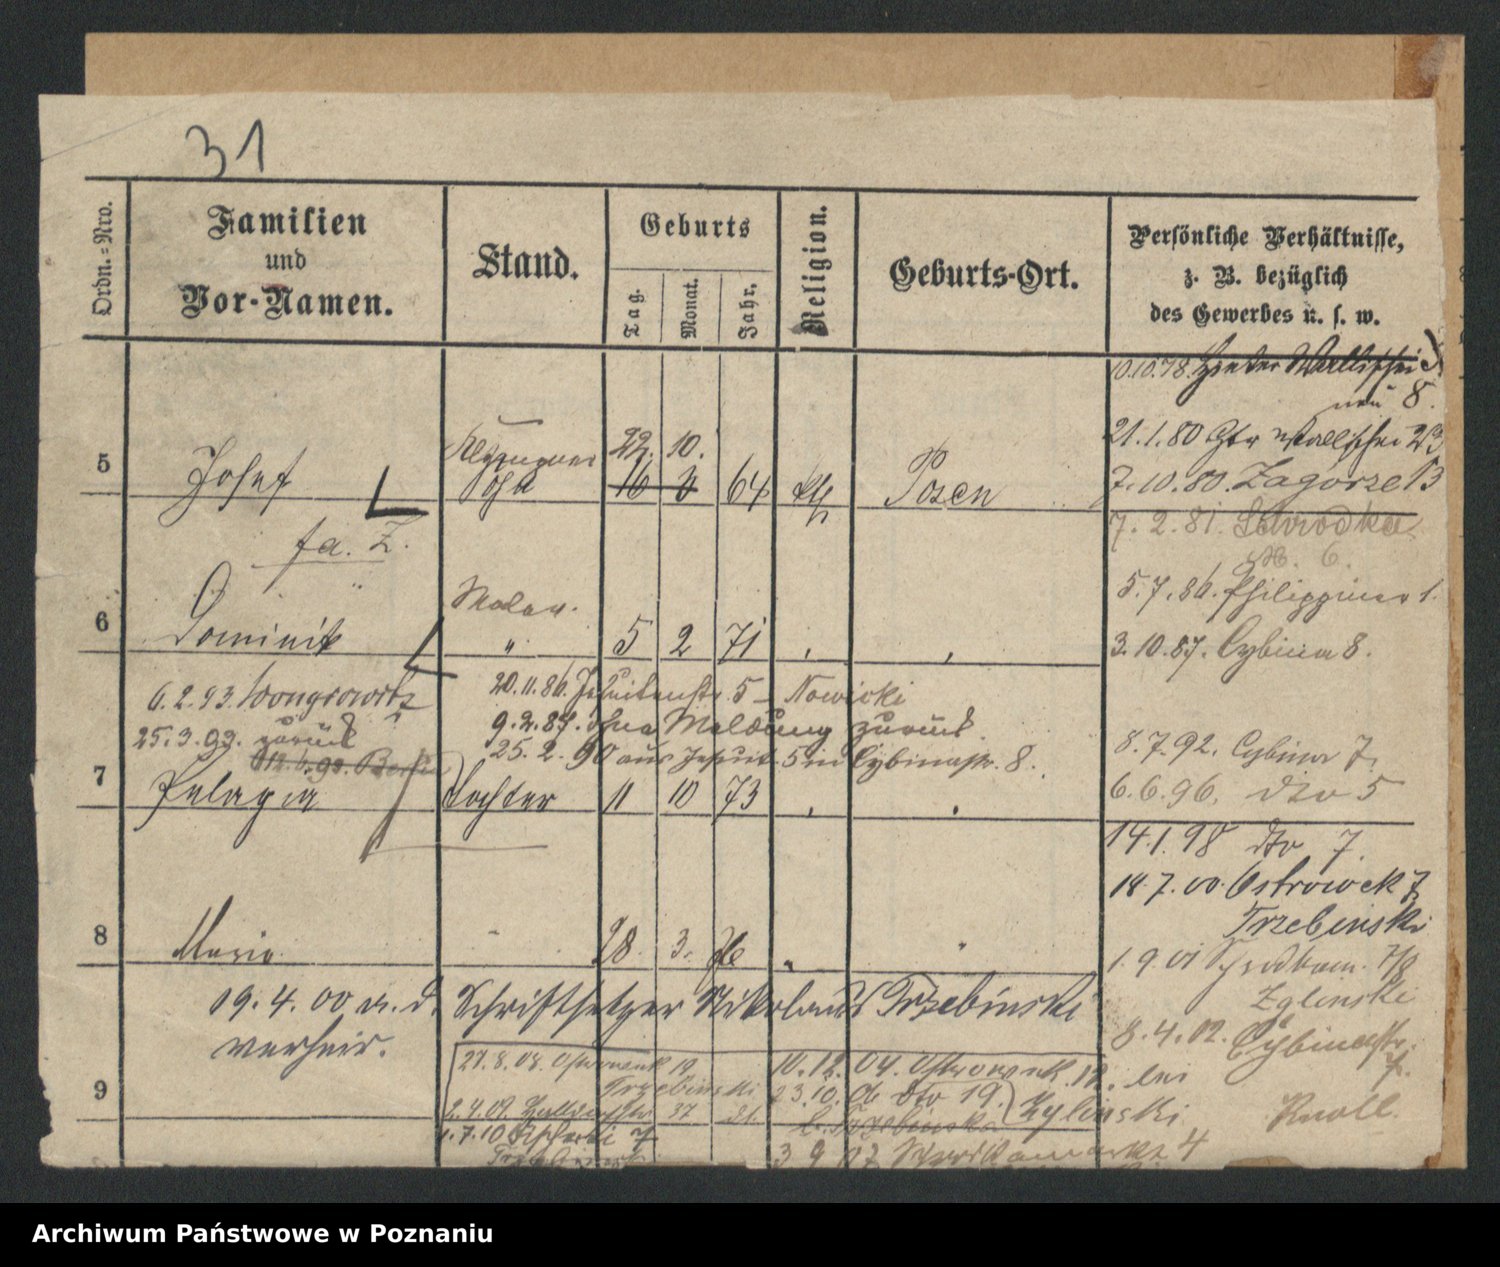 31
Ordn.=Nro.
Familien
und
Vor-Namen.
Stand.
Geburts
Tag.
Monat.
Jahr.
Religion.
Geburts-Ort.
Persönliche Verhältnisse,
z. B. bezüglich
des Gewerbes u. s. w.
10.10.78. Hinter Wallischei
neu 8.
21.1.80 Htr Wallischei 23
22. 10.
5 Josef Sohn 16 64 kth Posen
7.10.80. Zagorze 13
7. 2. 81. Schrodka
N. 6.
fa. Z.
5.7.86. Philippiner 1.
Maler.
6 Dominik " 5 2 71
3.10.87. Cybina 8.
6.2.93. Wongrowitz
20.11.86. Jesuitenstr. 5 - Nowicki
25.3.93. zurück
9.2.87. ohne Meldung zurück.
25. 2. 90 aus Jesuit. 5 in Cybinastr. 8.
8.7.92. Cybina 7.
7 Pelagia Tochter 11 10 73
6.6.96. dto 5
14.1.98 dto 7.
18.7.00. Ostrowek 7
Trzebinski
8 Maria " 28. 3. "
1.9.01 7/8
Zylinski
19.4.00 m. d. Schriftsetzer Nikolaus Trzebinski
verheir.
8.4.02. Cybinastr.
7.
27.8.08. Ostrowek 19
Trzebinski
10.12.04. Ostrowek 12. bei
23.10. dto 19. Zylinski
Knoll.
9
2.4.09. 37
b. Trzebinski
1.7.10 7
3 9 07 Schrodkamarkt 4
Archiwum Państwowe w Poznaniu